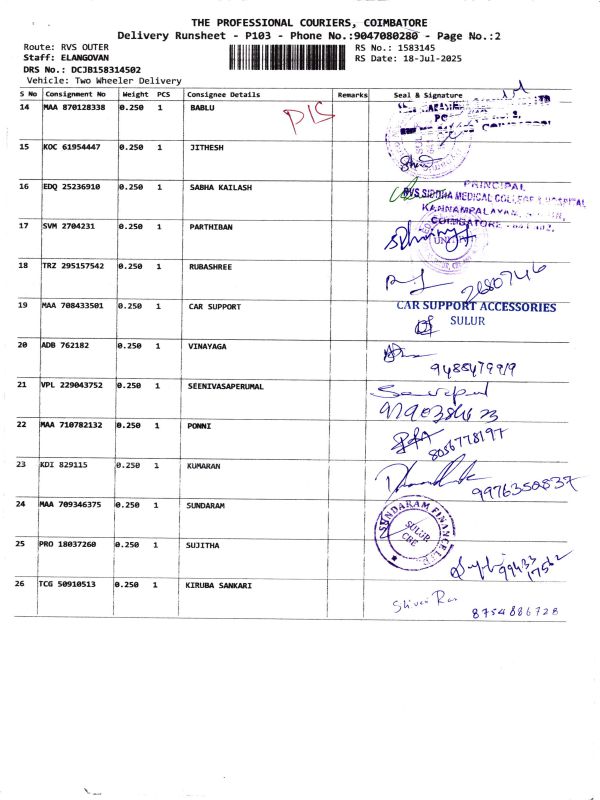 THE PROFESSIONAL COURIERS, COIMBATORE
Delivery Runsheet - P103 - Phone No.:9047080280 - Page No.:2
Route: RVS OUTER
RS No.: 1583145
Staff: ELANGOVAN
RS Date: 18-Jul-2025
DRS No.: DCJB158314502
Vehicle: Two Wheeler Delivery
S No Consignment No Weight PCS Consignee Details Remarks Seal & Signature
14 MAA 870128338 0.250 1 BABLU
15 KOC 61954447 0.250 1 JITHESH
16 EDQ 25236910 0.250 1 SABHA KAILASH
PRINCIPAL
RVS SIDDHA MEDICAL COLLEGE & HOSPITAL
KANNAMPALAYAM, SULUR,
COIMBATORE
17 SVM 2704231 0.250 1 PARTHIBAN
18 TRZ 295157542 0.250 1 RUBASHREE
19 MAA 708433501 0.250 1 CAR SUPPORT
CAR SUPPORT ACCESSORIES
SULUR
20 ADB 762182 0.250 1 VINAYAGA
21 VPL 229043752 0.250 1 SEENIVASAPERUMAL
22 MAA 710782132 0.250 1 PONNI
8056778197
23 KDI 829115 0.250 1 KUMARAN
9976350837
24 MAA 709346375 0.250 1 SUNDARAM
SUNDARAM FINANCE LTD
SULUR
CBE
25 PRO 18037260 0.250 1 SUJITHA
26 TCG 50910513 0.250 1 KIRUBA SANKARI
8754886728